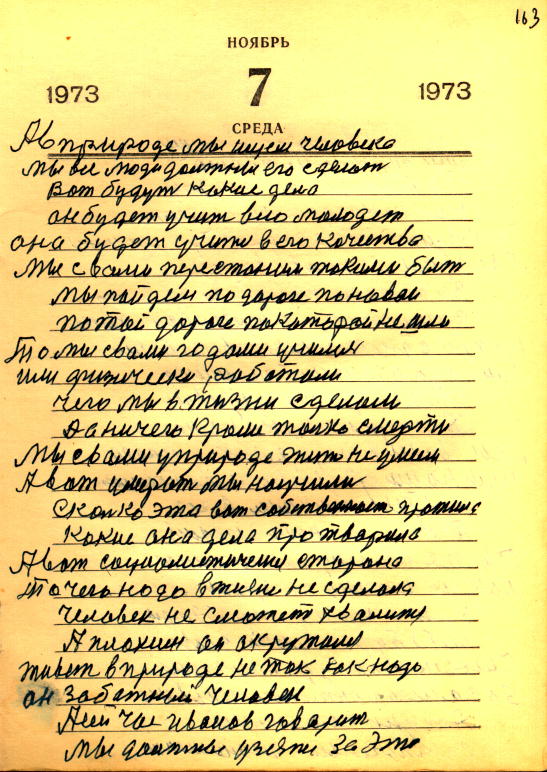 163
НОЯБРЬ
1973 7 1973
СРЕДА
А в природе мы ищем человека
мы все люди должны его сделат
Вот будут какие дела
он будет учит всю молодеж
она будет учится его качества
Мы с вами перестаним такими быт
мы пойдем по дороге по новай
по той дороге по каторой не шли
То мы с вами годами учимся
или физически работали
чего мы в жизни сделали
Да ничего кроми толко смерти
Мы с вами у природе жит не умеем
А вот умерат мы научили
Сколко эта вот собственост прожила
Какие она дела протварила
А вот социолистичения сторона
То чего надо в жизни не сделала
Человек не сможет хвалится
А плохим он окружался
живет в природе не так как надо
он заботный человек
А сейчас Иванов говарит
мы должны взятся за это